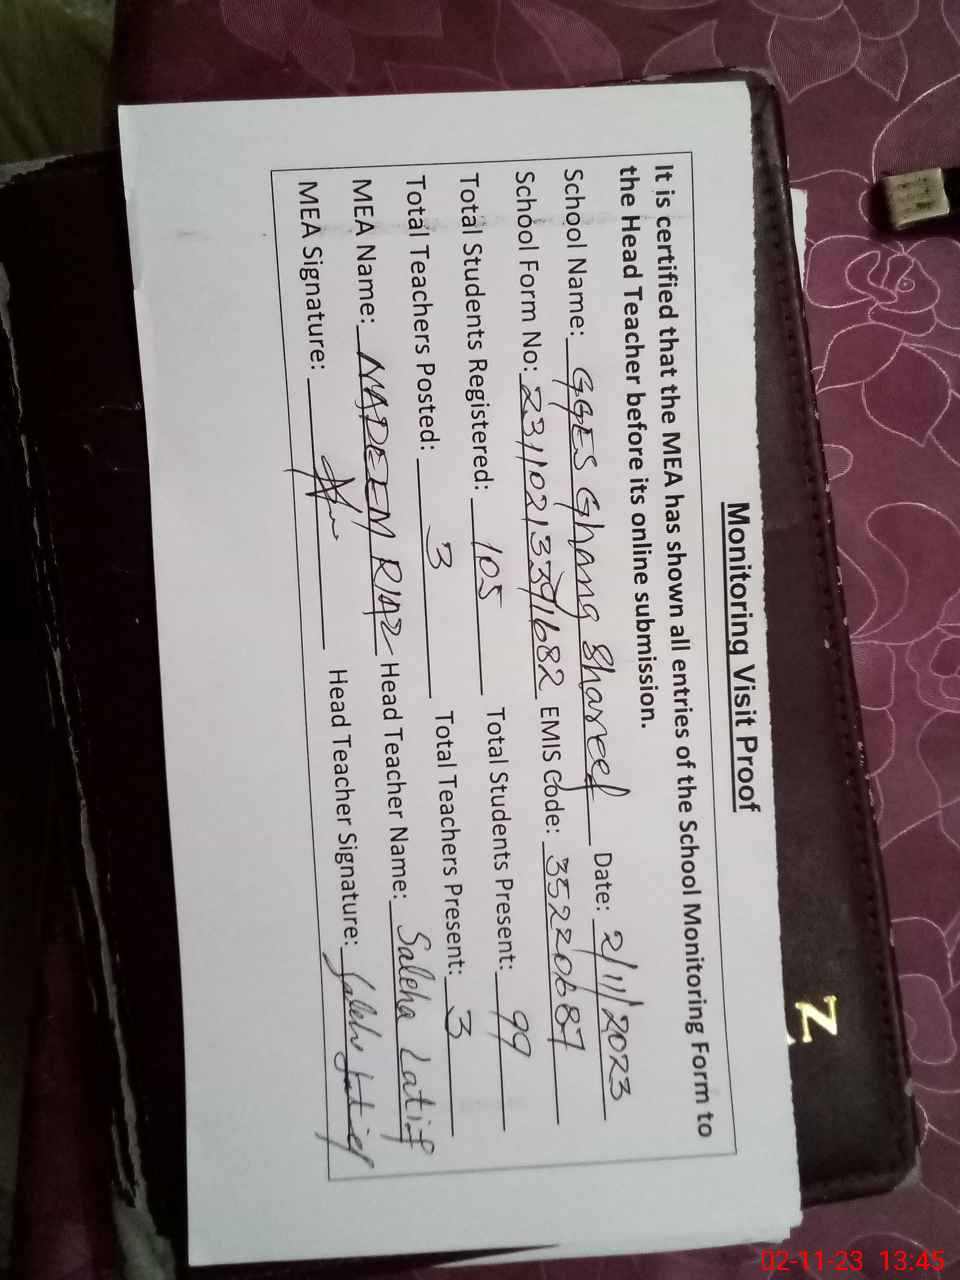 Monitoring Visit Proof
It is certified that the MEA has shown all entries of the School Monitoring Form to
the Head Teacher before its online submission.
School Name: GGES Ghang Shareef Date: 2/11/2023
School Form No: EMIS Code: 35220687
Total Students Registered: 105 Total Students Present: 99
Total Teachers Posted: 3 Total Teachers Present: 3
MEA Name: NADEEM RIAZ Head Teacher Name: Saleha Latif
MEA Signature: Head Teacher Signature: Saleha Latief
Z
02-11-23 13:45